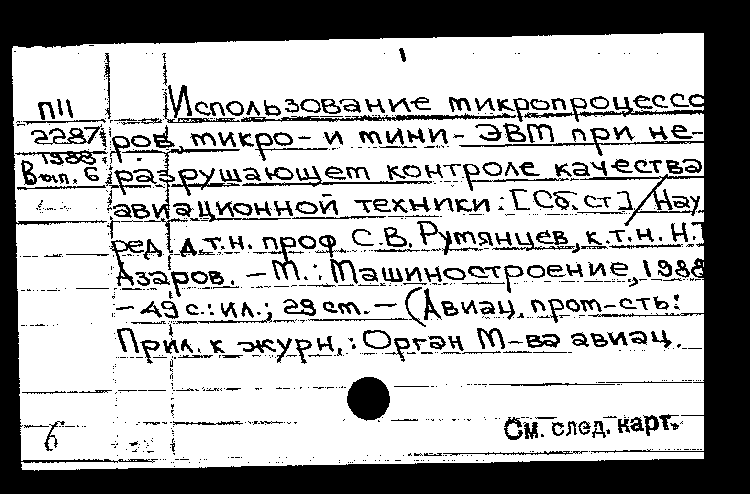 П11
2287
1988
Вып. 6
Использование микропроцессо
ров, микро- и мини-ЭВМ при не-
разрушающем контроле качества
авиационной техники: [Сб. ст.] / Нау
ред. д.т.н. проф. С.В. Румянцев, к.т.н. Н.Т
Азаров. – М.: Машиностроение, 1988
– 49 с.: ил.; 29 см. – (Авиац. пром-сть:
Прил. к журн.: Орган М-ва авиац.
6
См. след. карт.